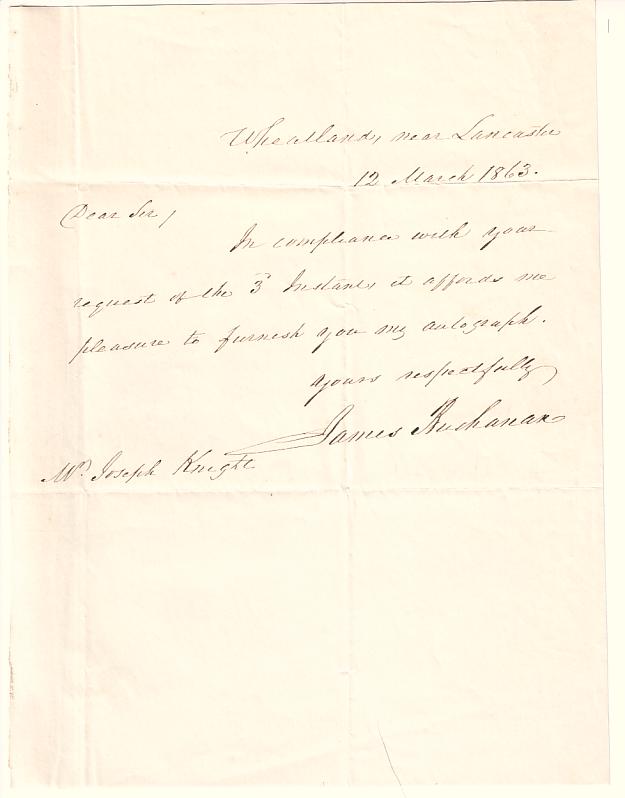 Wheatland, near Lancaster
12 March 1863.
Dear Sir,
In compliance with your
request of the 3d Instant, it affords me
pleasure to furnish you my autograph.
yours respectfully
James Buchanan
Mr. Joseph Knight